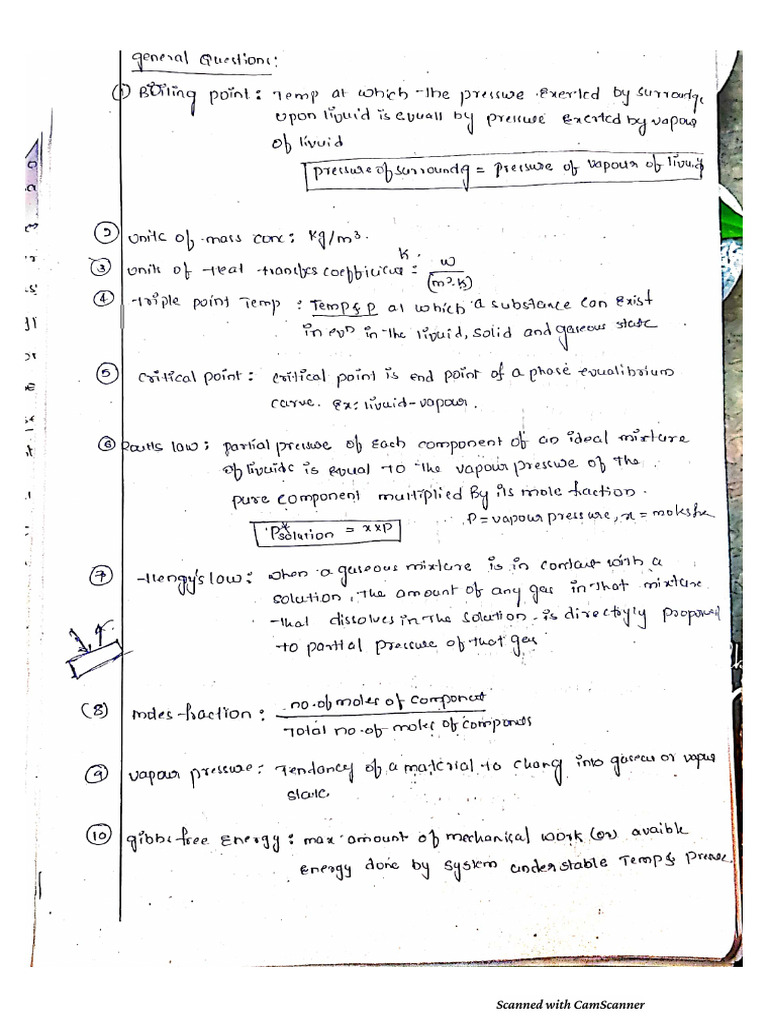 general Questions:
① Boiling point: Temp at which the pressure exerted by surroundg
upon livuid is evuall by pressure exerted by vapour
of livuid
pressure of surroundg = pressure of vapour of livuid
② units of mass conc: kg/m³.
③ units of Heat transfer coefficient: w/(m².k)
④ triple point Temp: Temp & p at which a substance can exist
in the livuid, solid and gaseous state
⑤ critical point: critical point is end point of a phase evualibrium
curve. Ex: livuid-vapour.
⑥ Roults low: partial pressure of Each component of an ideal mixture
of livuids is evual to the vapour pressure of the
pure component multiplied by its mole fraction.
P = vapour pressure, x =
P*solution = x×p
⑦ Hengy's low: when a gaseous mixture is in contact with a
solution, the amount of any gas in that mixture
that dissolves in the solution is directyly
to partial pressure of that gas
(8) moles fraction: no. of moles of component
Total no. of moles of components
⑨ vapour pressure: Tendancy of a material to chang into gaseou or vapour
state.
⑩ gibbs free Energy: max amount of mechanical work (or) avaible
energy done by system under stable Temp &
Scanned with CamScanner